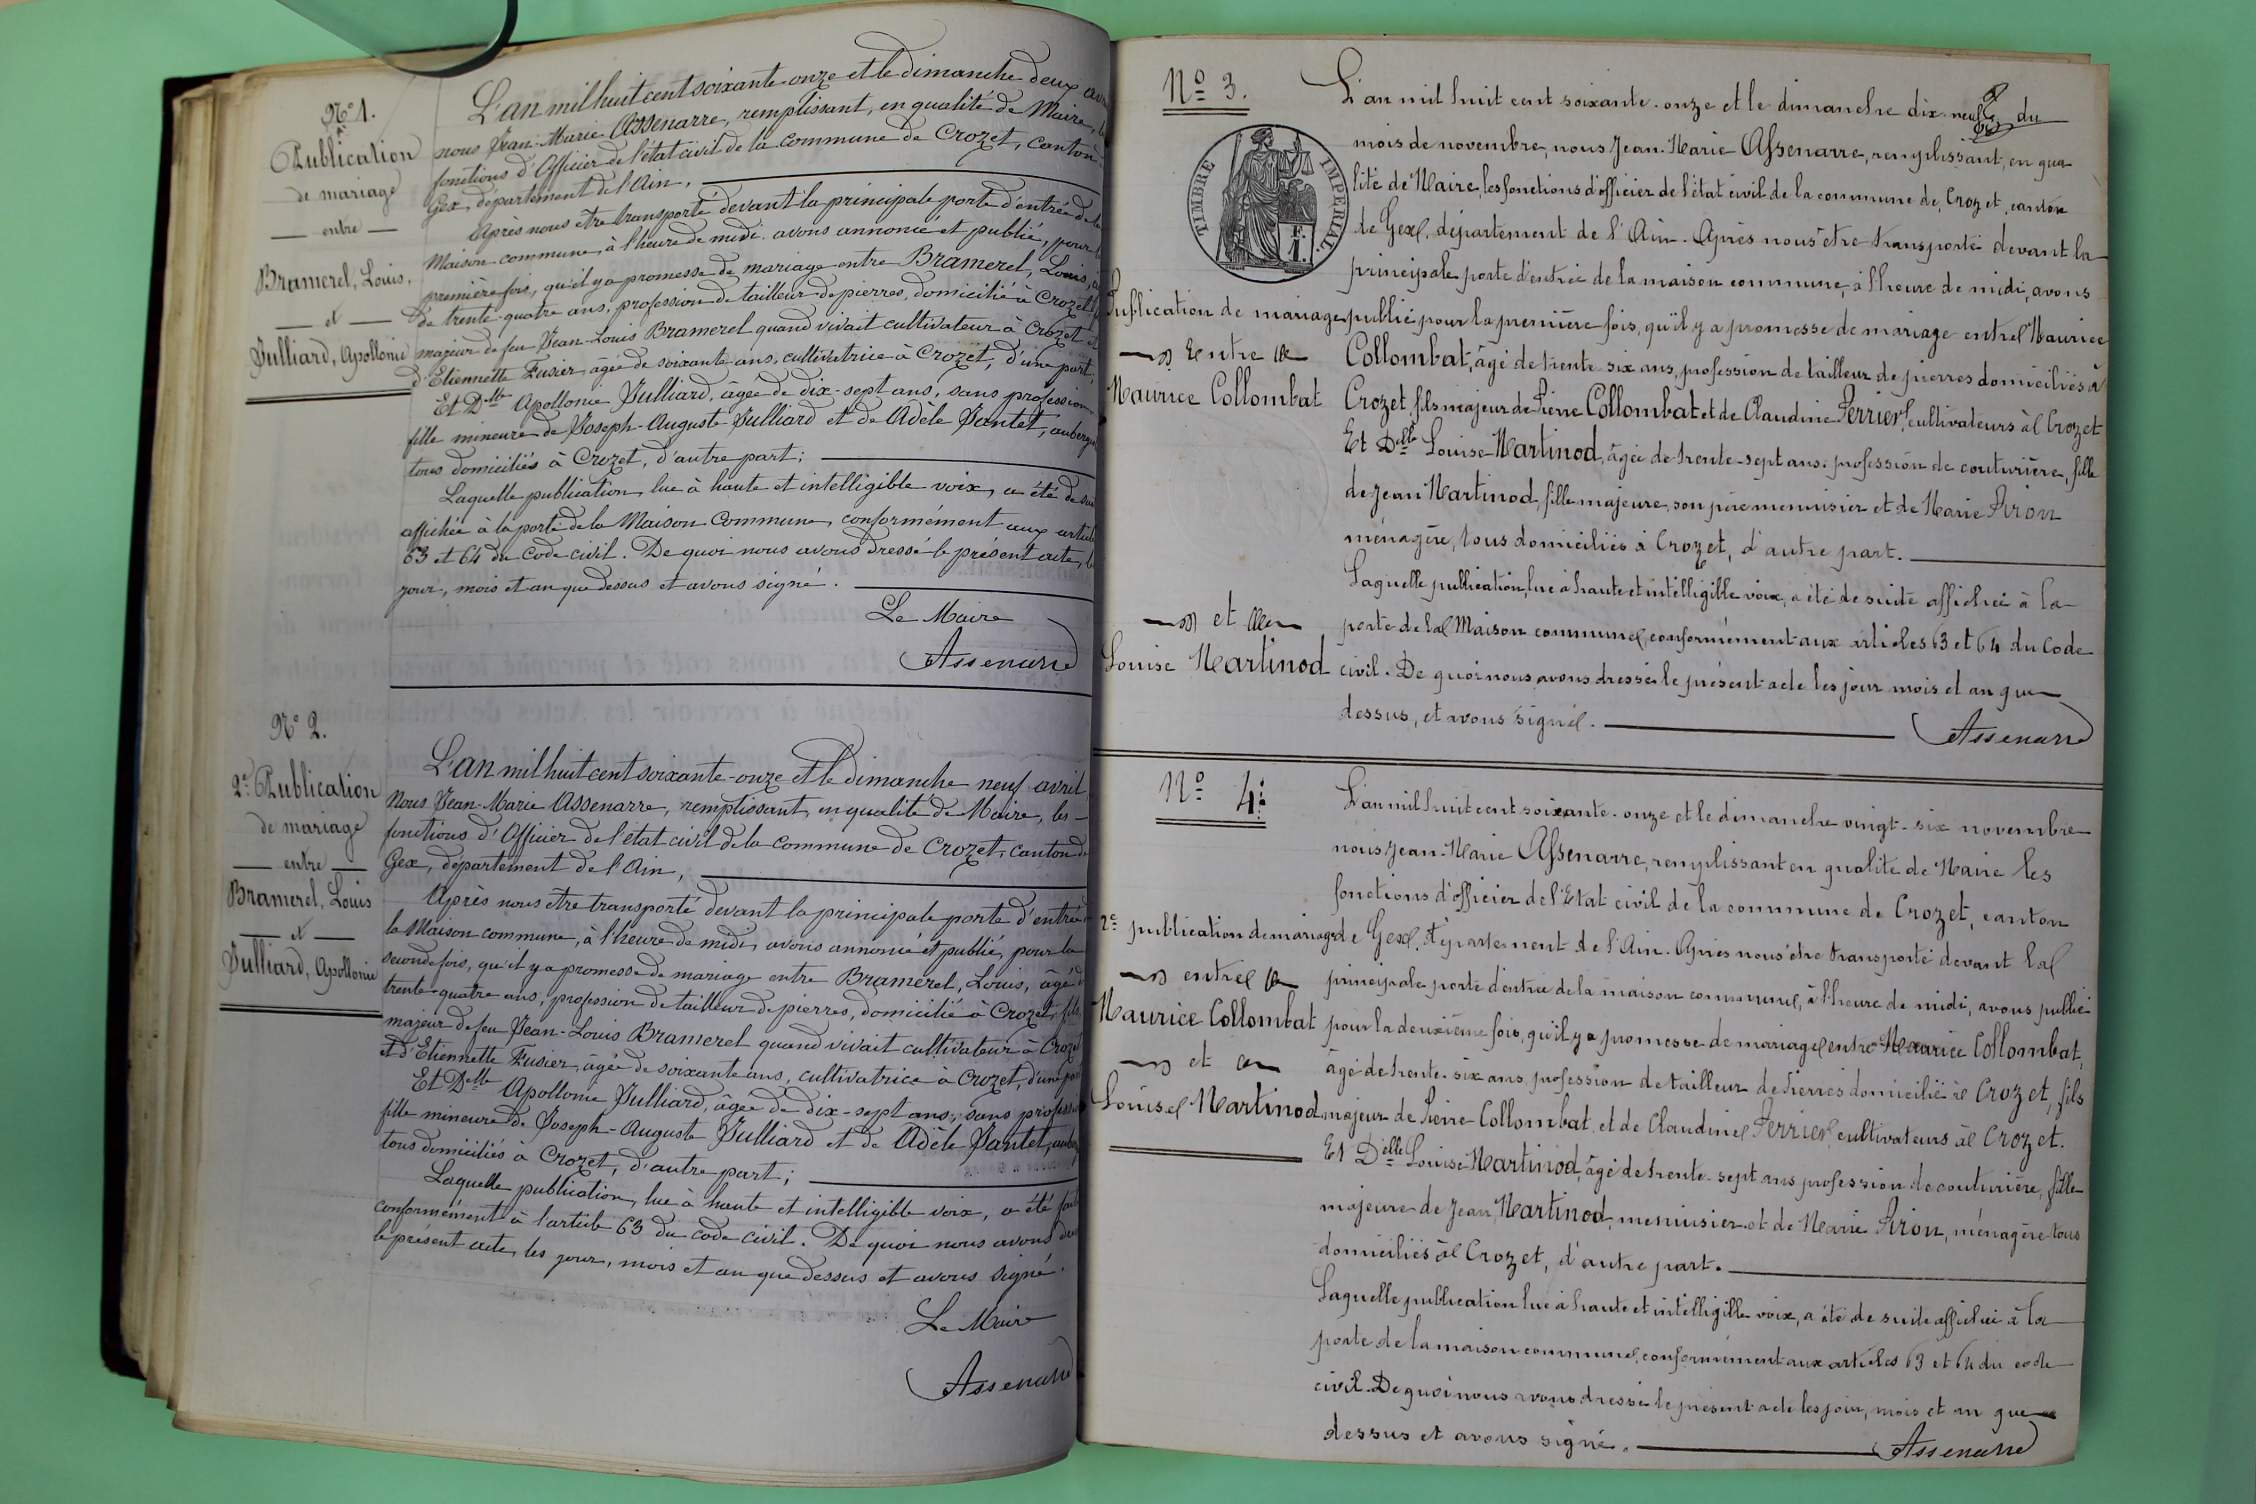 Nº 1.
Publication
de mariage
entre
Bramerel, Louis,
et
Julliard, Apollonie
L'an mil huit cent soixante-onze et le dimanche deux
nous Jean-Marie Assenarre, remplissant, en qualité de Maire,
fonctions d'Officier de l'état civil de la commune de Crozet, canton
Gex, département de l'Ain,
Après nous être transporté devant la principale porte d'entrée de la
Maison commune, à l'heure de midi, avons annoncé et publié, pour
première fois, qu'il y a promesse de mariage entre Bramerel, Louis,
de trente-quatre ans, profession de tailleur de pierres, domicilié à Crozet,
majeur de feu Jean-Louis Bramerel quand vivait cultivateur à Crozet et
d'Etiennette Fusier, âgée de soixante ans, cultivatrice à Crozet, d'une part;
Et Dlle Apollonie Julliard, âgée de dix-sept ans, sans profession,
fille mineure de Joseph-Auguste Julliard et de Adèle Jantet,
tous domiciliés à Crozet, d'autre part;
Laquelle publication, lue à haute et intelligible voix, a été de
affichée à la porte de la Maison Commune, conformément aux
63 et 64 du code civil. De quoi nous avons dressé le présent acte,
jour, mois et an que dessus et avons signé.
Le Maire
Assenarre
Nº 2.
2e Publication
de mariage
entre
Bramerel, Louis
et
Julliard, Apollonie
L'an mil huit cent soixante-onze et le dimanche neuf avril
Nous Jean-Marie Assenarre, remplissant, en qualité de Maire, les
fonctions d'Officier de l'état civil de la commune de Crozet, canton de
Gex, département de l'Ain,
Après nous être transporté devant la principale porte d'entrée
la Maison commune, à l'heure de midi, avons annoncé et publié, pour la
seconde fois, qu'il y a promesse de mariage entre Bramerel, Louis, âgé
trente-quatre ans, profession de tailleur de pierres, domicilié à Crozet, fils
majeur de feu Jean-Louis Bramerel quand vivait cultivateur à Crozet
et d'Etiennette Fusier, âgée de soixante ans, cultivatrice à Crozet, d'une
Et Dlle Apollonie Julliard, âgée de dix-sept ans, sans
fille mineure de Joseph-Auguste Julliard et de Adèle Jantet,
tous domiciliés à Crozet, d'autre part;
Laquelle publication, lue à haute et intelligible voix, a été
conformément à l'article 63 du code civil. De quoi nous avons
le présent acte, les jour, mois et an que dessus et avons signé.
Le Maire
Assenarre
Nº 3.
TIMBRE IMPERIAL.
1 F.
Publication de mariage
entre
Maurice Collombat
et
Louise Martinod
L'an mil huit cent soixante-onze et le dimanche dix-neuf du
mois de novembre, nous Jean-Marie Assenarre, remplissant, en qua
lité de Maire, les fonctions d'officier de l'état civil de la commune de Crozet, canton
de Gex, département de l'Ain. Après nous être transporté devant la
principale porte d'entrée de la maison commune, à l'heure de midi, avons
publié pour la première fois, qu'il y a promesse de mariage entre Maurice
Collombat, âgé de trente-six ans, profession de tailleur de pierres domiciliés à
Crozet, fils majeur de Pierre Collombat et de Claudine Perrier, cultivateurs à Crozet
Et Delle Louise Martinod, âgée de trente-sept ans, profession de couturière, fille
de Jean Martinod, fille majeure, son père menuisier et de Marie Piron
ménagère, tous domiciliés à Crozet, d'autre part.
Laquelle publication, lue à haute et intelligible voix, a été de suite affichée à la
porte de la Maison commune, conformément aux articles 63 et 64 du Code
civil. De quoi nous avons dressé le présent acte les jour mois et an que
dessus, et avons signé.
Assenarre
Nº 4.
2e publication de mariage
entre
Maurice Collombat
et
Louise Martinod
L'an mil huit cent soixante-onze et le dimanche vingt-six novembre
nous Jean-Marie Assenarre, remplissant en qualité de Maire les
fonctions d'officier de l'Etat civil de la commune de Crozet, canton
de Gex, département de l'Ain. Après nous être transporté devant la
principale porte d'entrée de la maison commune, à l'heure de midi, avons publié
pour la deuxième fois, qu'il y a promesse de mariage entre Maurice Collombat,
âgé de trente-six ans, profession de tailleur de pierres domicilié à Crozet, fils
majeur de Pierre Collombat, et de Claudine Perrier, cultivateurs à Crozet.
Et Delle Louise Martinod, âgé de trente-sept ans profession de couturière, fille
majeure de Jean Martinod, menuisier et de Marie Piron, ménagère tous
domiciliés à Crozet, d'autre part.
Laquelle publication lue à haute et intelligible voix, a été de suite affichée à la
porte de la maison commune, conformément aux articles 63 et 64 du code
civil. De quoi nous avons dressé le présent acte les jour, mois et an que
dessus et avons signé.
Assenarre